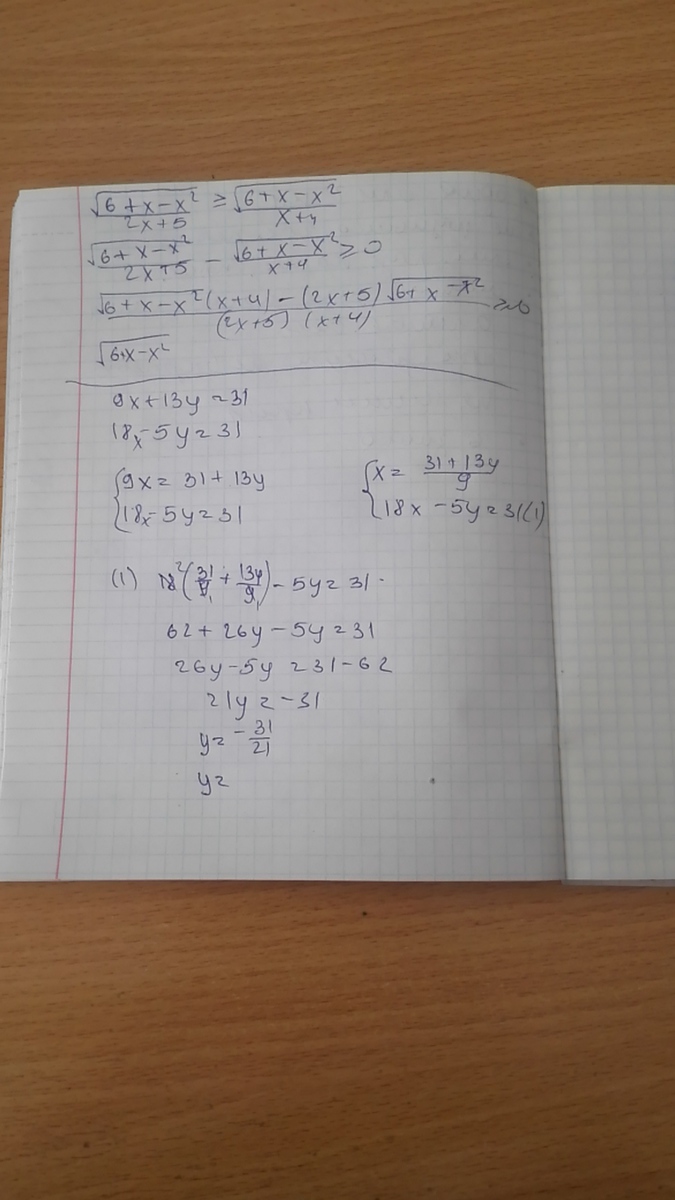 √(6+x-x²)/(2x+5) ≥ √(6+x-x²)/(x+4)
√(6+x-x²)/(2x+5) - √(6+x-x²)/(x+4) ≥ 0
(√(6+x-x²)(x+4) - (2x+5)√(6+x-x²))/((2x+5)(x+4)) ≥ 0
√(6+x-x²)
9x+13y=31
18x-5y=31
{9x=31+13y
{18x-5y=31
{x=(31+13y)/9
{18x-5y=31(1)
(1) 18²(31/9₁+13y/9₁)-5y=31
62+26y-5y=31
26y-5y=31-62
21y=-31
y=-31/21
y=